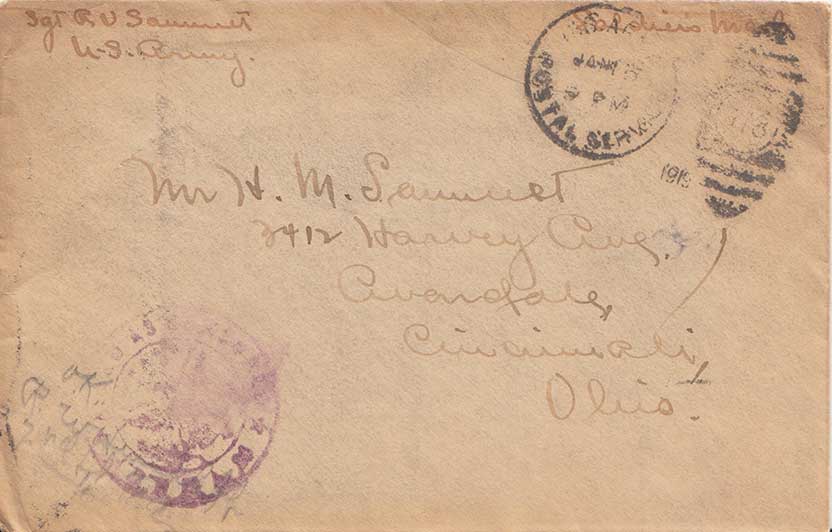 Sgt R V Sammet
U.S. Army.
Soldiers Mail
POSTAL SERVICE
JAN
PM
1919
Mr H. M. Sammet
3412 Harvey Ave.
Avondale,
Cincinnati,
Ohio.
OK